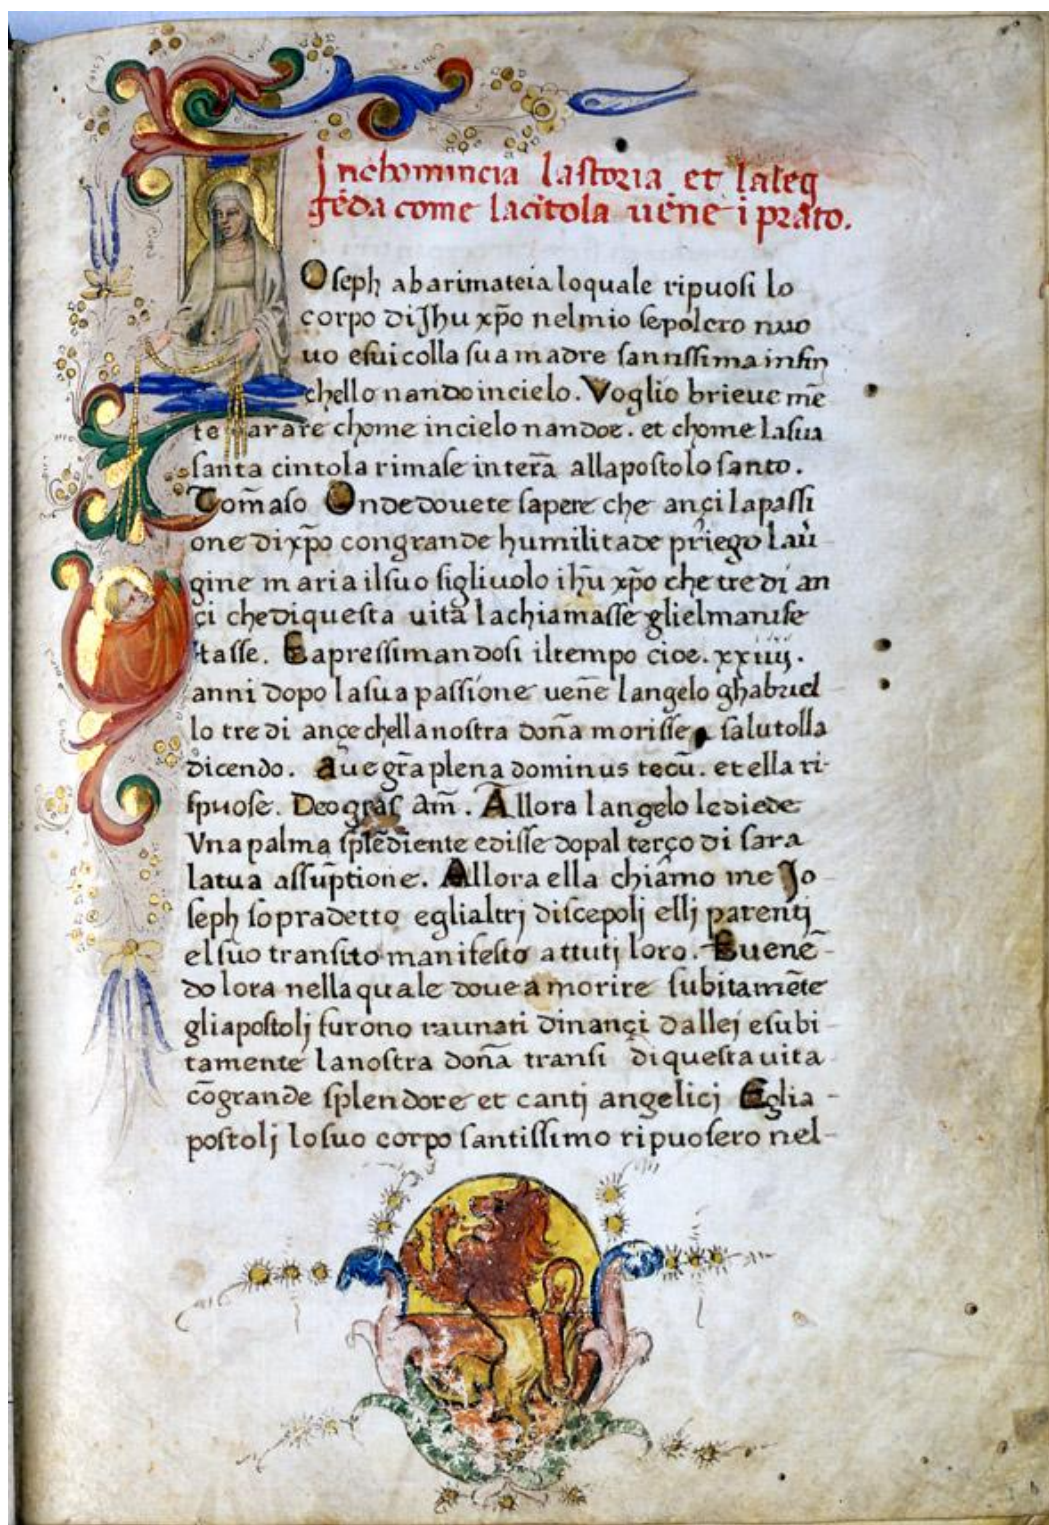 Inchomincia lastoria et laleg
gēda come lacītola vēne ī prato.
Oseph abarimateia loquale ripuosi lo
corpo di Jhu xp̄o nelmio sepolcro nuo
uo e fui colla sua madre santissima infin
chello nando incielo. Voglio brieue mē
te narare chome incielo nandoe. et chome lasua
santa cintola rimase interā allapostolo santo.
Tom̄aso Onde douete sapere che ançi lapassi
one di xp̄o con grande humilitade priego la ui
gine maria il suo figliuolo ihū xp̄o che tre di an
çi che di questa uita lachiamasse glielmanife
stasse. Eapressimandosi iltempo cioe. xxiiij.
anni dopo lasua passione uen̄e langelo ghabriel
lo tre di ançe chella nostra don̄a morisse e salutolla
dicendo. Aue gr̄a plena dominus tecū. et ella ri-
spuose. Deo gras̄ am̄. Allora langelo lediede
Vna palma splēdiente edisse dopal terço di sara
latua assūptione. Allora ella chiamo me Jo
seph sopradetto eglialtrj discepolj ellj parentj
elsuo transito manifesto attutj loro. Euenē-
do lora nella quale douea morire subitamēte
gliapostolj furono raunati dinançi dallej esubi-
tamente lanostra don̄a transi di questa uita
cōgrande splendore et cantj angelicj Eglia-
postolj losuo corpo santissimo ripuosero nel-